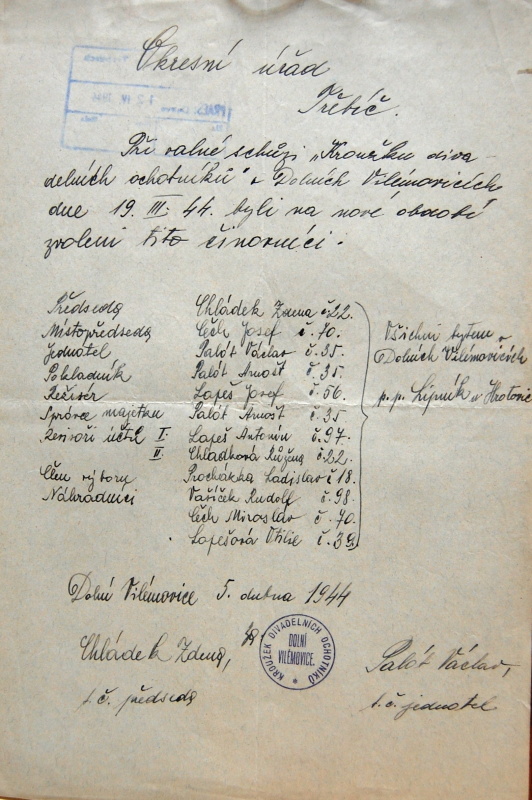 Okresní úřad
Třebíč.
Při valné schůzi „Kroužku diva-
delních ochotníků" v Dolních Vilémovicích
dne 19. III. 44. byli na nové období
zvoleni tito činovníci:
Předseda Chládek Zdena č. 22.
Místopředseda Čech Josef č. 70.
Jednatel Palát Václav č. 35.
Pokladník Palát Arnošt č. 35.
Režisér Lapeš Josef č. 56.
Správce majetku Palát Arnošt č. 35
Revisoři účtů I. Lapeš Antonín č. 97.
II. Chládková Růžena č. 22.
Člen výboru Procházka Ladislav č. 18.
Náhradníci Vařiček Rudolf č. 98.
Čech Miroslav č. 70.
Lapešová Otilie č. 39.
Všichni bytem v
Dolních Vilémovicích
p. p. Lipník u Hrotovic
Dolní Vilémovice 5. dubna 1944
KROUŽEK DIVADELNÍCH OCHOTNÍKŮ
DOLNÍ
VILÉMOVICE.
Chládek Zdena,
t. č. předseda
Palát Václav,
t. č. jednatel